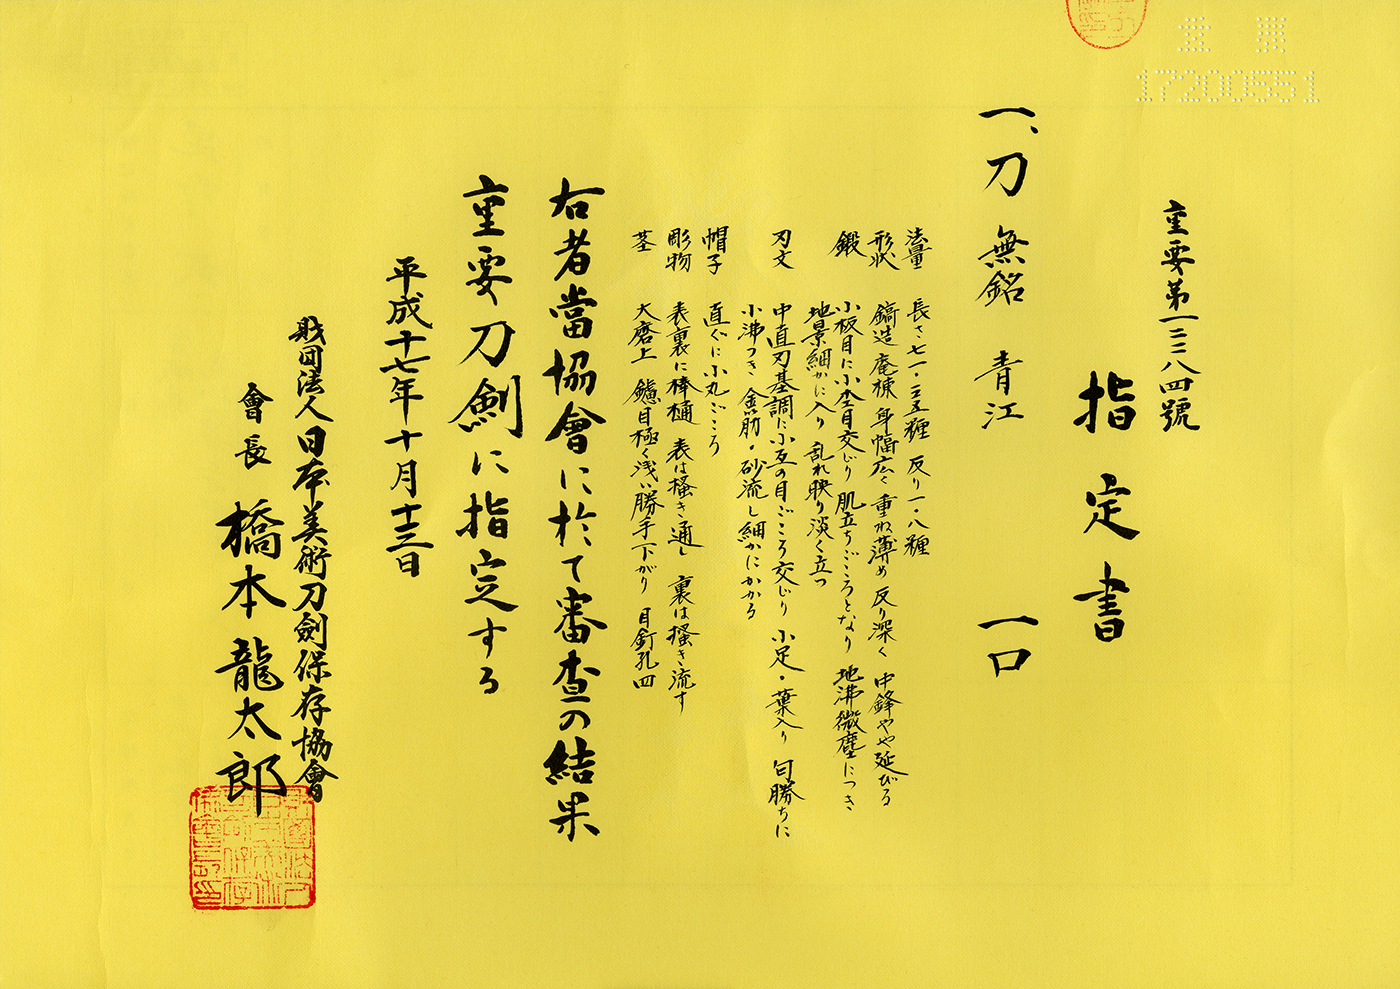 17200551
重要第一三三八四號
指定書
一、刀 無銘 青江 一口
法量 長さ七一・二五糎 反り一・八糎
形状 鎬造 庵棟 身幅広く 重ね薄め 反り深く 中鋒やや延びる
鍛 小板目に小杢目交じり 肌立ちごころとなり 地沸微塵につき
地景細かに入り 乱れ映り淡く立つ
刃文 中直刃基調に小互の目ごころ交じり 小足・葉入り 匂勝ちに
小沸つき 金筋・砂流し細かにかかる
帽子 直ぐに小丸ごころ
彫物 表裏に棒樋 表は掻き通し 裏は掻き流す
茎 大磨上 鑢目極く浅い勝手下がり 目釘孔四
右者當協會に於て審査の結果
重要刀剣に指定する
平成十七年十月十三日
財団法人日本美術刀劍保存協會
會長 橋本龍太郎